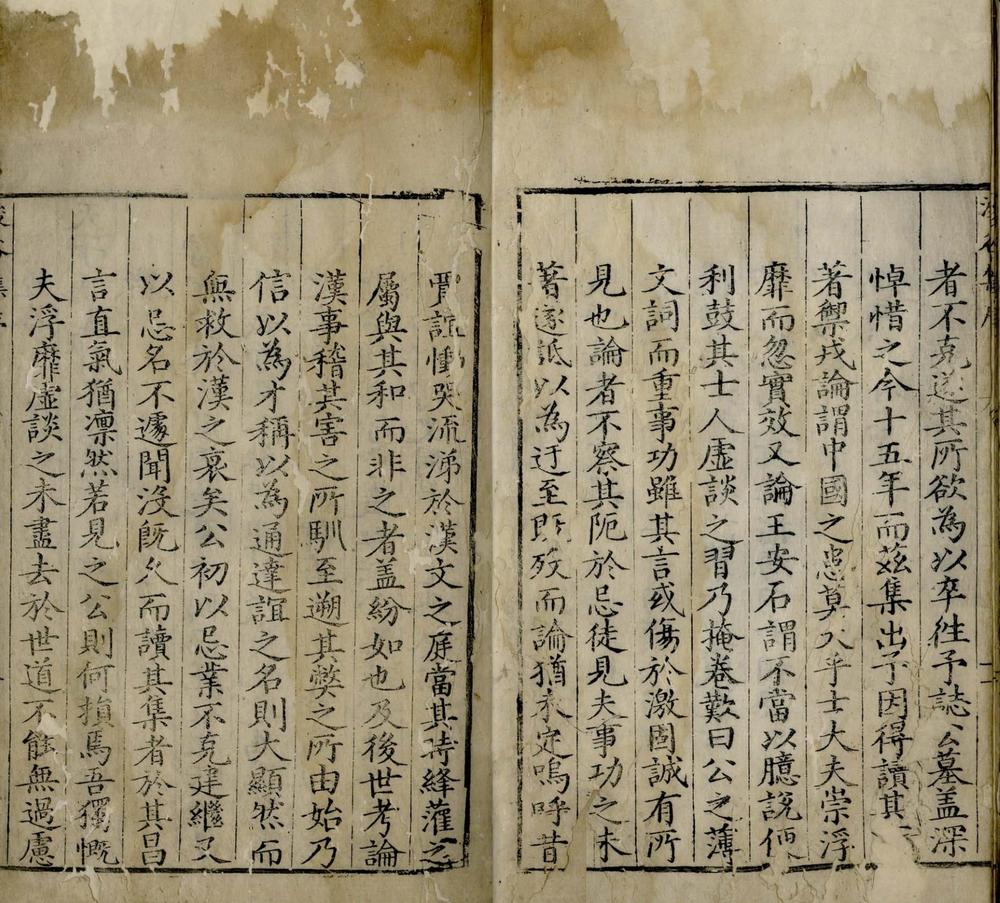 者不克遂其所欲為以卒徃予誌公墓盖深
悼惜之今十五年而兹集出予因得讀其
著禦戎論謂中國之患莫大乎士大夫崇浮
靡而忽實效又論王安石謂不當以臆説便
利鼓其士人虛談之習乃掩卷歎曰公之薄
文詞而重事功雖其言或傷於激固誠有所
見也論者不察其阨於忌徒見夫事功之未
著遂詆以為迂至既歿而論猶未定嗚呼昔
賈誼慟哭流涕於漢文之庭當其時絳灌之
屬與其和而非之者盖紛如也及後世考論
漢事稽其害之所馴至遡其弊之所由始乃
信以為才稱以為通達誼之名則大顯然而
無救於漢之衰矣公初以忌業不克建繼又
以忌名不遽聞沒既久而讀其集者於其昌
言直氣猶凛然若見之公則何損焉吾獨慨
夫浮靡虛談之未盡去於世道不能無過慮